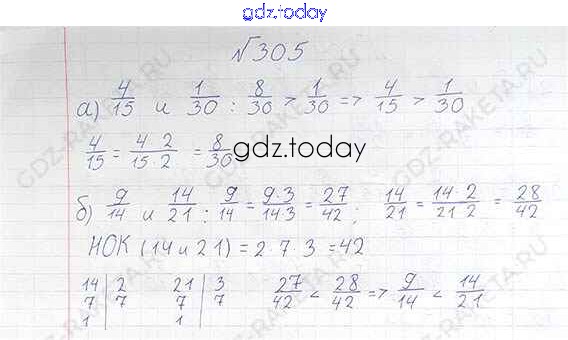 gdz.today
№305
а) 4/15 и 1/30 : 8/30 > 1/30 => 4/15 > 1/30
4/15 = 4 2/15·2 = 8/30
gdz.today
б) 9/14 и 14/21 : 9/14 = 9·3/14·3 = 27/42 ; 14/21 = 14·2/21 2 = 28/42
НОК (14 и 21) = 2·7·3 = 42
14 | 2 21 | 3 27/42 < 28/42 => 9/14 < 14/21
7 | 7 7 | 7
1 | 1 |
GDZ-RAKETA.RU